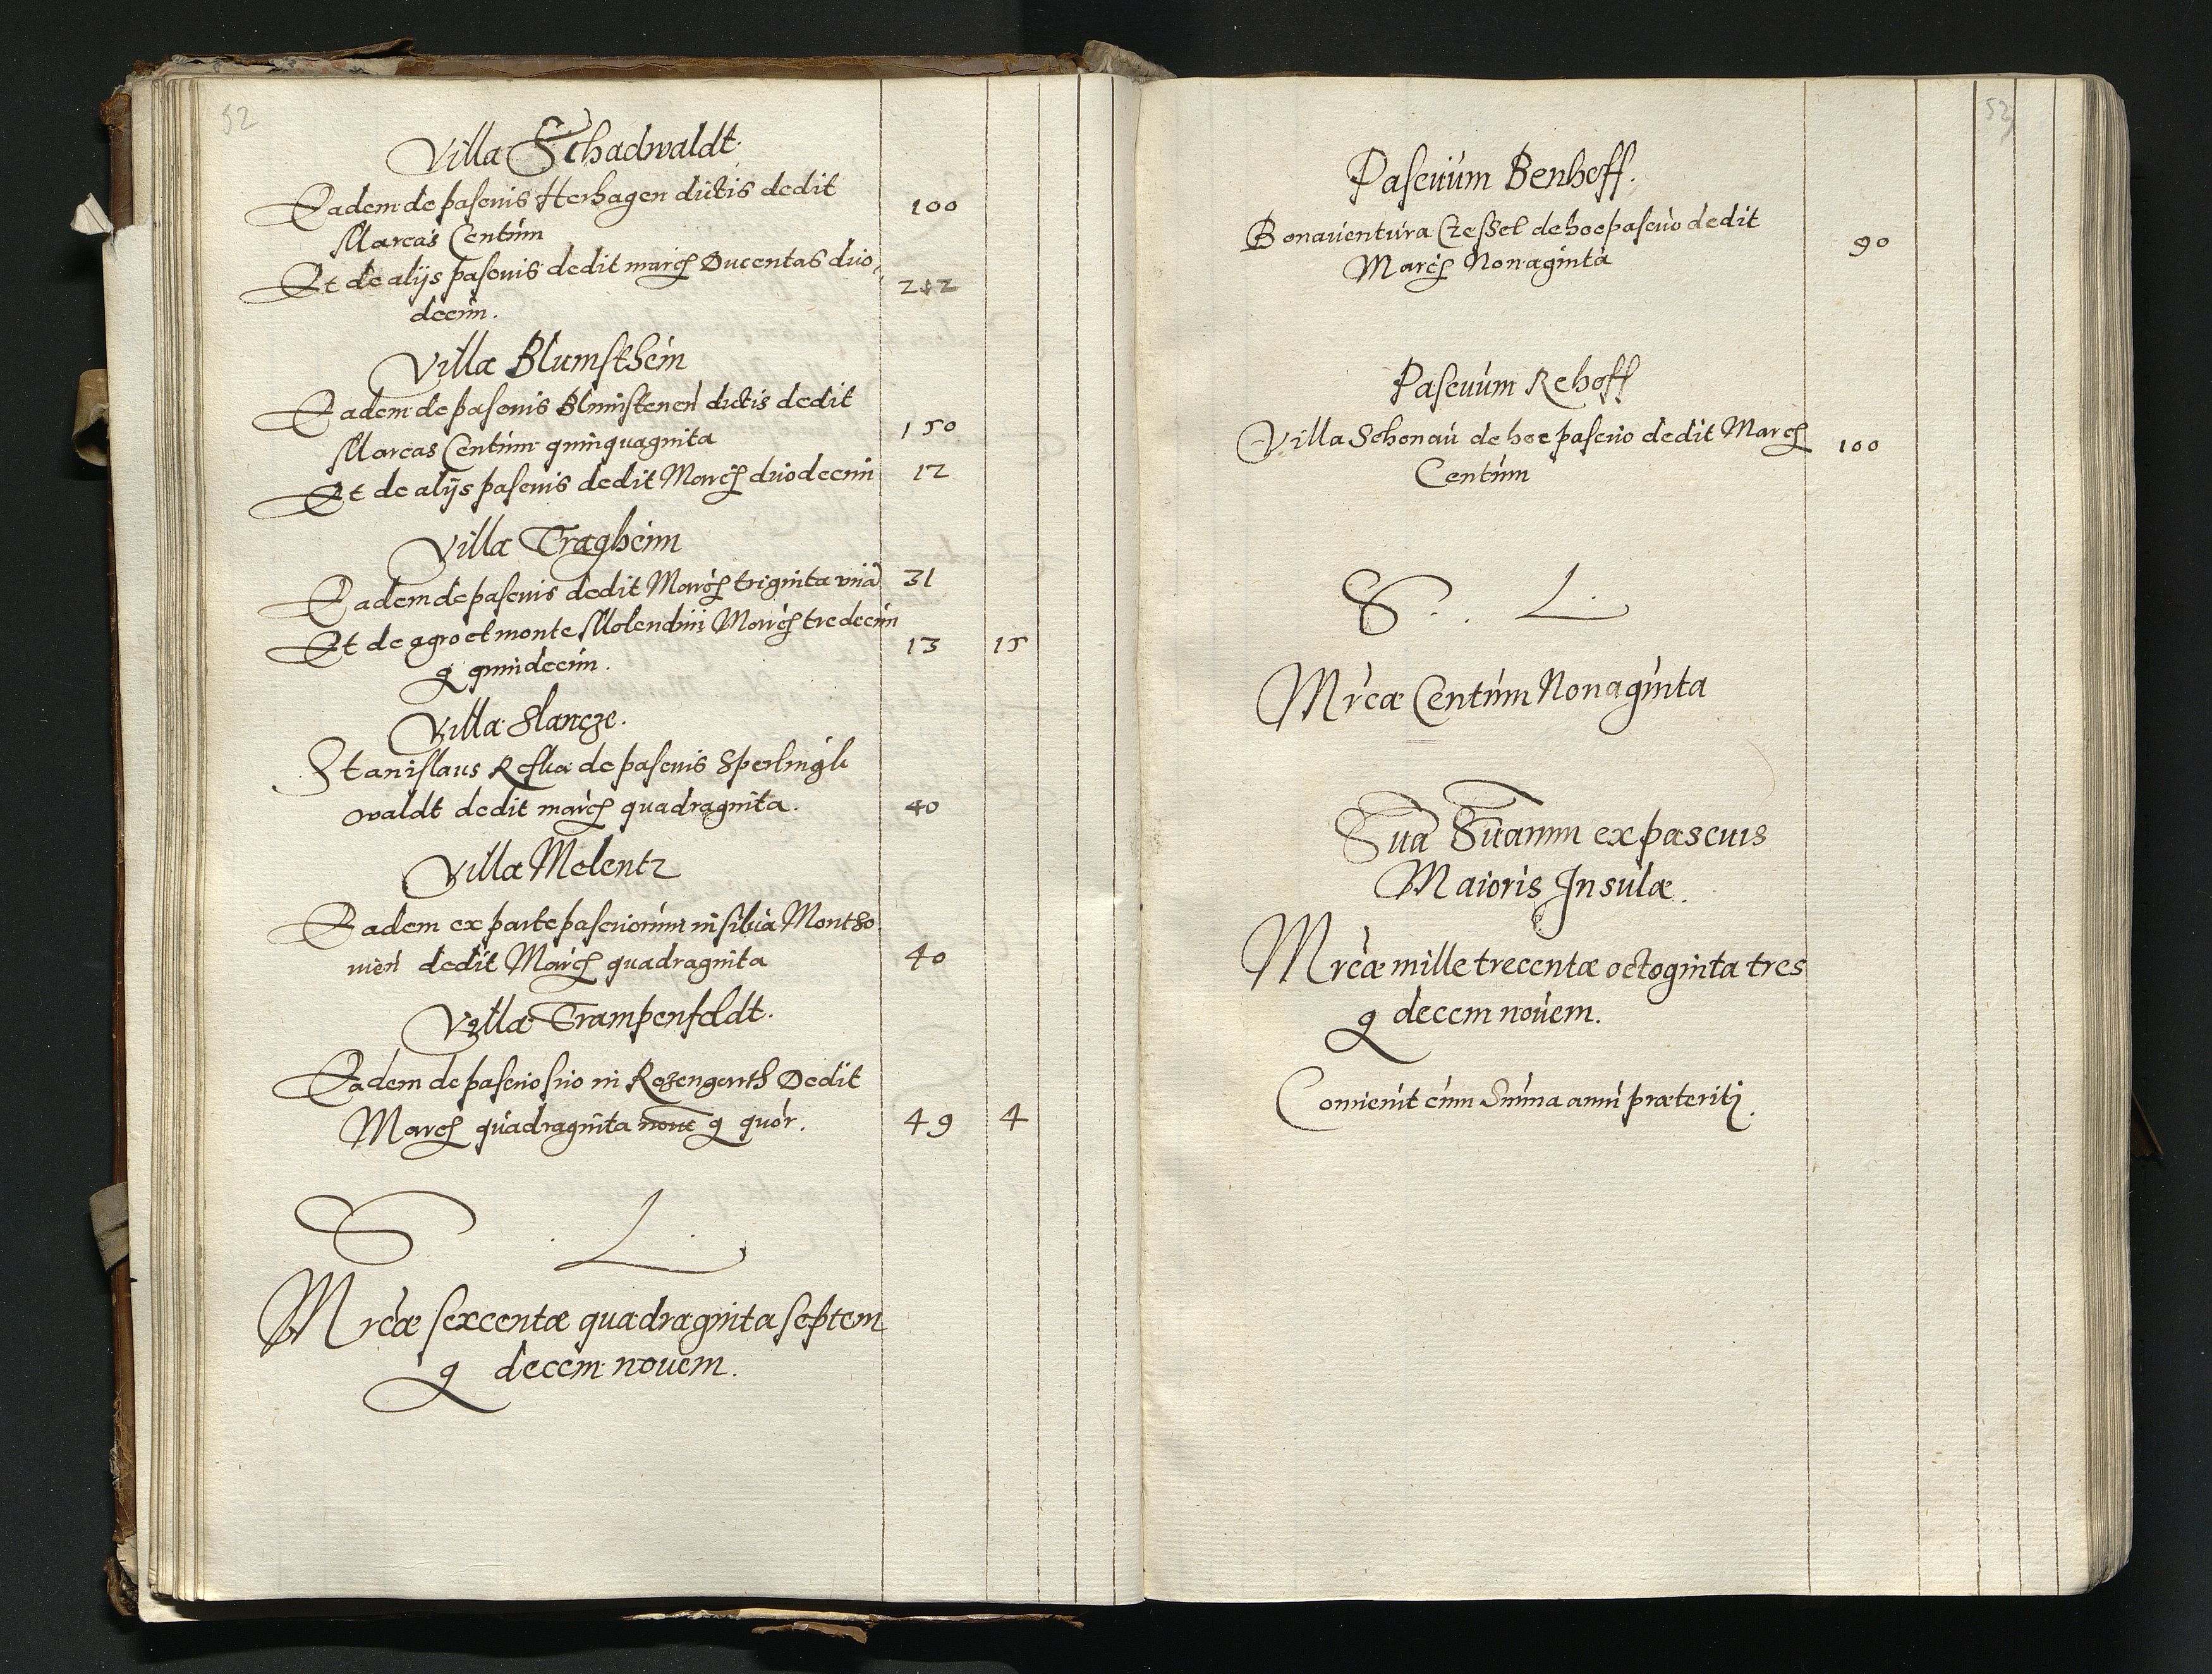 52
Villa Schadwaldt.
Eadem de pascuis Herhagen dictis dedit
Marcas Centum
100
Et de alijs pascuis dedit marcs Ducentas duo
decim.
212
Villa Blumsthein
Eadem de pascuis Blumstenen dictis dedit
Marcas Centum quinquaginta
150
Et de alijs pascuis dedit Marcs duodecim
12
Villa Tragheim
Eadem de pascuis dedit Marcs triginta una
31
Et de agro et monte Molendini Marcs tredecim
g quindecim.
13 15
Villa Slancze.
Stanislaus Reska de pascuis Sperlingk
waldt dedit marcs quadraginta.
40
Villa Melentz
Eadem ex parte pascuorum in silua Montho
uien dedit Marcs quadraginta
40
Villa Trampenfeldt.
Eadem de pascuo suo in Rozengarth Dedit
Marcs quadraginta nove g quor.
49 4
S. L.
Mrcæ sexcentæ quadraginta septem
g decem nouem.
53
Pascuum Benhoff.
Bonauentura Czessel de hoc pascuo dedit
Marcs Nonaginta
90
Pascuum Rehoff
Villa Schonau de hoc pascuo dedit Marcs
Centum
100
S. L.
Mrcæ Centum Nonaginta
Sua Suarum ex pascuis
Maioris Insulæ.
Mrcæ mille trecentæ octoginta tres
g decem nouem.
Conuenit cum Summa anni præteriti.